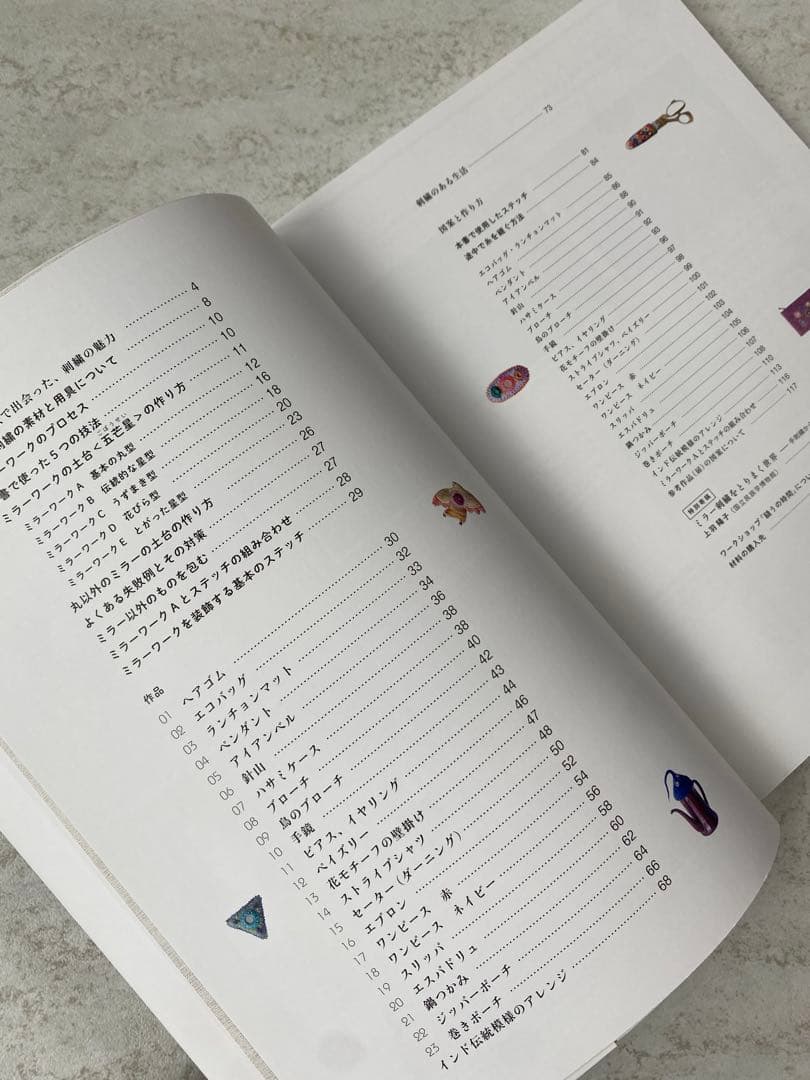 で出会った、刺繍の魅力 4
刺繍の素材と用具について 8
ーワークのプロセス 10
書で使った5つの技法 10
ミラーワークの土台<五芒星>の作り方 11
ミラーワークA 基本の丸型 12
ミラーワークB 伝統的な星型 16
ミラーワークC うずまき型 18
ミラーワークD 花びら型 20
ミラーワークE とがった星型 23
丸以外のミラーの土台の作り方 26
よくある失敗例とその対策 27
ミラー以外のものを包む 27
ミラーワークAとステッチの組み合わせ 28
ミラーワークを装飾する基本のステッチ 29
作品
01 ヘアゴム 30
02 エコバッグ 32
03 ランチョンマット 33
04 ペンダント 34
05 アイアンベル 36
06 針山 38
07 ハサミケース 38
08 ブローチ 40
09 鳥のブローチ 42
10 手鏡 43
11 ピアス、イヤリング 44
12 ペイズリー 46
13 花モチーフの壁掛け 47
14 ストライプシャツ 48
15 セーター(ダーニング) 50
16 エプロン 52
17 ワンピース 赤 54
18 ワンピース ネイビー 56
19 スリッパ 58
20 エスパドリュ 60
21 鍋つかみ 62
22 ジッパーポーチ 64
23 巻きポーチ 66
インド伝統模様のアレンジ 68
刺繍のある生活 73
図案と作り方
本書で使用したステッチ 81
途中で糸を継ぐ方法 84
エコバッグ・ランチョンマット 85
ヘアゴム 86
ペンダント 88
アイアンベル 90
針山 91
ハサミケース 92
ブローチ 93
鳥のブローチ 96
手鏡 97
ピアス、イヤリング 98
花モチーフの壁掛け 99
ストライプシャツ、ペイズリー 100
セーター(ダーニング) 102
エプロン 103
ワンピース 赤 104
ワンピース ネイビー 105
スリッパ 106
エスパドリュ
鍋つかみ 107
ジッパーポーチ 108
巻きポーチ 110
インド伝統模様のアレンジ 113
ミラーワークAとステッチの組み合わせ 116
参考作品(扉)の図案について 117
特別寄稿
ミラー刺繍をとりまく世界
上羽陽子(国立民族学博物館)
ワークショップ「縫うの時間」につい
材料の購入先